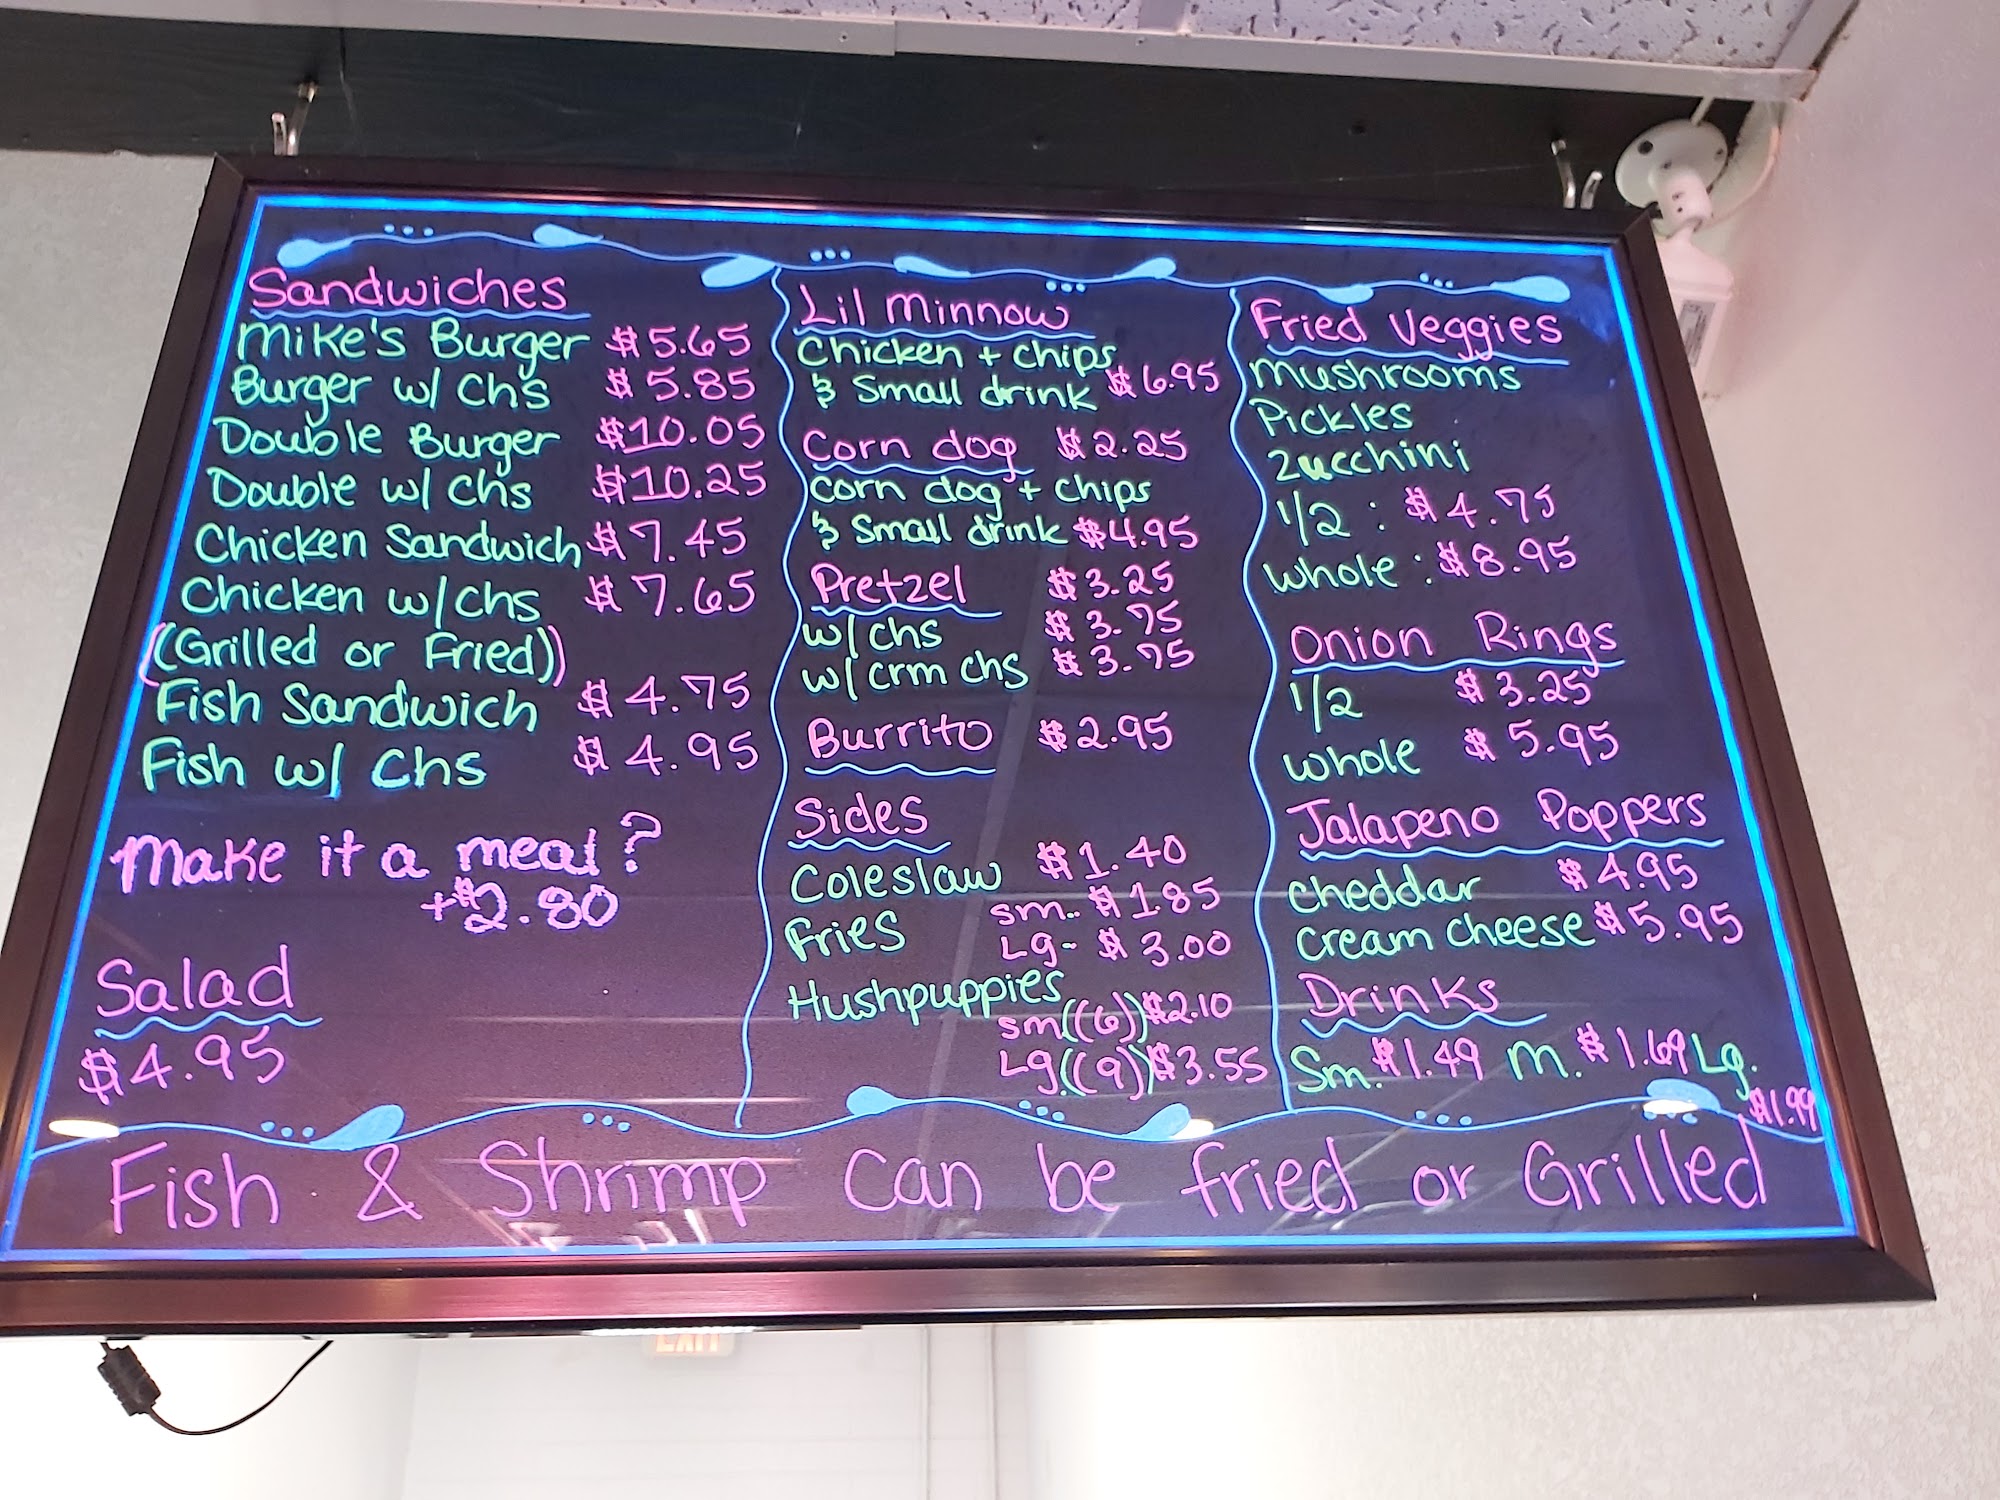 Sandwiches
Mike's Burger $5.65
Burger w/ Chs $5.85
Double Burger $10.05
Double w/ chs $10.25
Chicken Sandwich $7.45
Chicken w/chs $7.65
(Grilled or Fried)
Fish Sandwich $4.75
Fish w/ Chs $4.95
Make it a meal?
+$2.80
Salad
$4.95
Lil Minnow
Chicken + chips
& Small drink $6.95
Corn dog $2.25
Corn dog + chips
& Small drink $4.95
Pretzel $3.25
w/ chs $3.75
w/ crm chs $3.75
Burrito $2.95
Sides
Coleslaw $1.40
Fries sm. $1.85
Lg- $3.00
Hushpuppies
sm (6) $2.10
Lg (9) $3.55
Fried Veggies
Mushrooms
Pickles
Zucchini
1/2 : $4.75
whole : $8.95
Onion Rings
1/2 $3.25
whole $5.95
Jalapeno Poppers
Cheddar $4.95
Cream cheese $5.95
Drinks
Sm. $1.49 M. $1.69 Lg.
$1.99
Fish & Shrimp can be fried or Grilled
EXIT